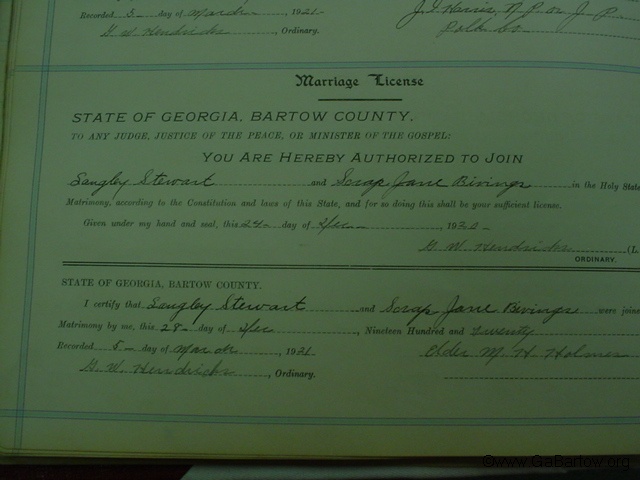 Recorded 5 day of March, 1921 J. I. Harris, N. P. & J. P.
G. W. Hendricks, Ordinary. Polk Co.
Marriage License
STATE OF GEORGIA, BARTOW COUNTY.
TO ANY JUDGE, JUSTICE OF THE PEACE, OR MINISTER OF THE GOSPEL:
YOU ARE HEREBY AUTHORIZED TO JOIN
Langley Stewart and Scrap Jane Bivings in the Holy State
Matrimony, according to the Constitution and laws of this State, and for so doing this shall be your sufficient license.
Given under my hand and seal, this 24 day of Dec, 1920
G. W. Hendricks (L.
ORDINARY.
STATE OF GEORGIA, BARTOW COUNTY.
I certify that Langley Stewart and Scrap Jane Bivings were joine
Matrimony by me, this 28 day of Dec, Nineteen Hundred and Twenty
Recorded 5 day of March, 1921 Elder M. H. Holmes
G. W. Hendricks, Ordinary.
©www.GaBartow.org